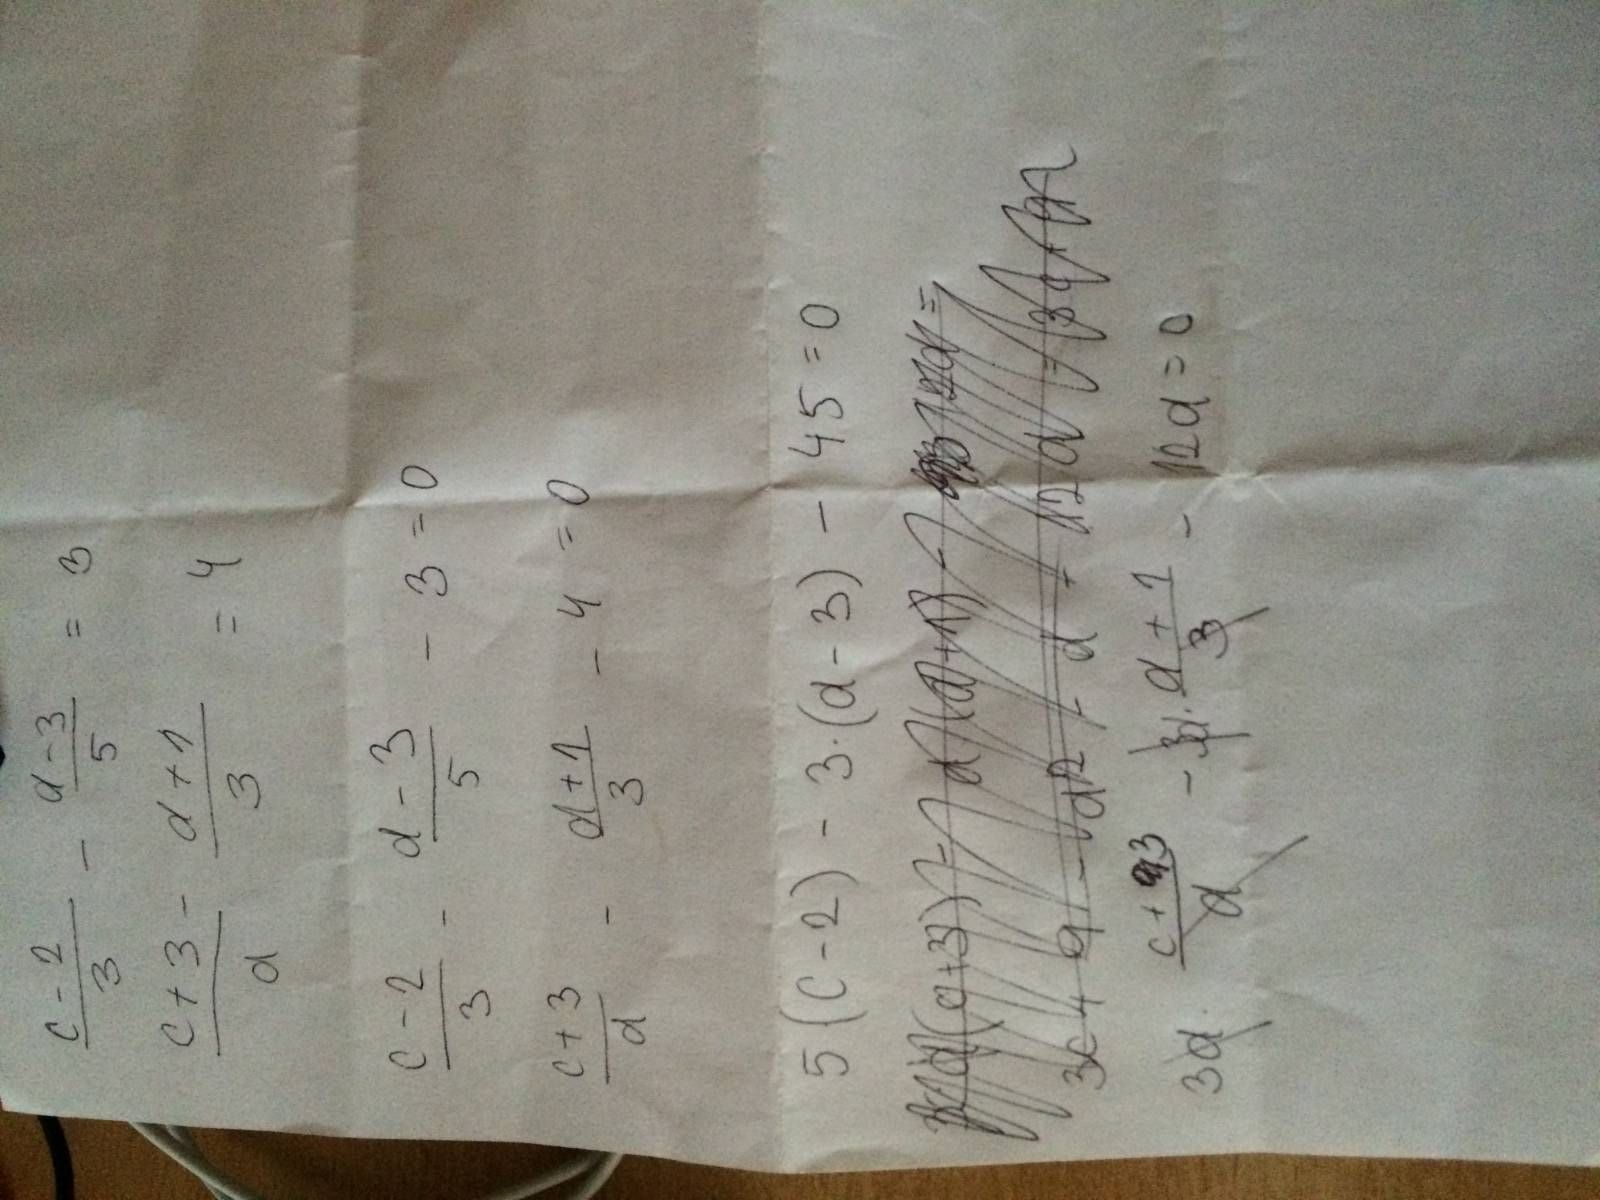 (c-2)/3 - (d-3)/5 = 3
(c+3)/d - (d+1)/3 = 4
(c-2)/3 - (d-3)/5 - 3 = 0
(c+3)/d - (d+1)/3 - 4 = 0
5(c-2) - 3·(d-3) - 45 = 0
3d · (c+3)/d - 3d · (d+1)/3 - 12d = 0